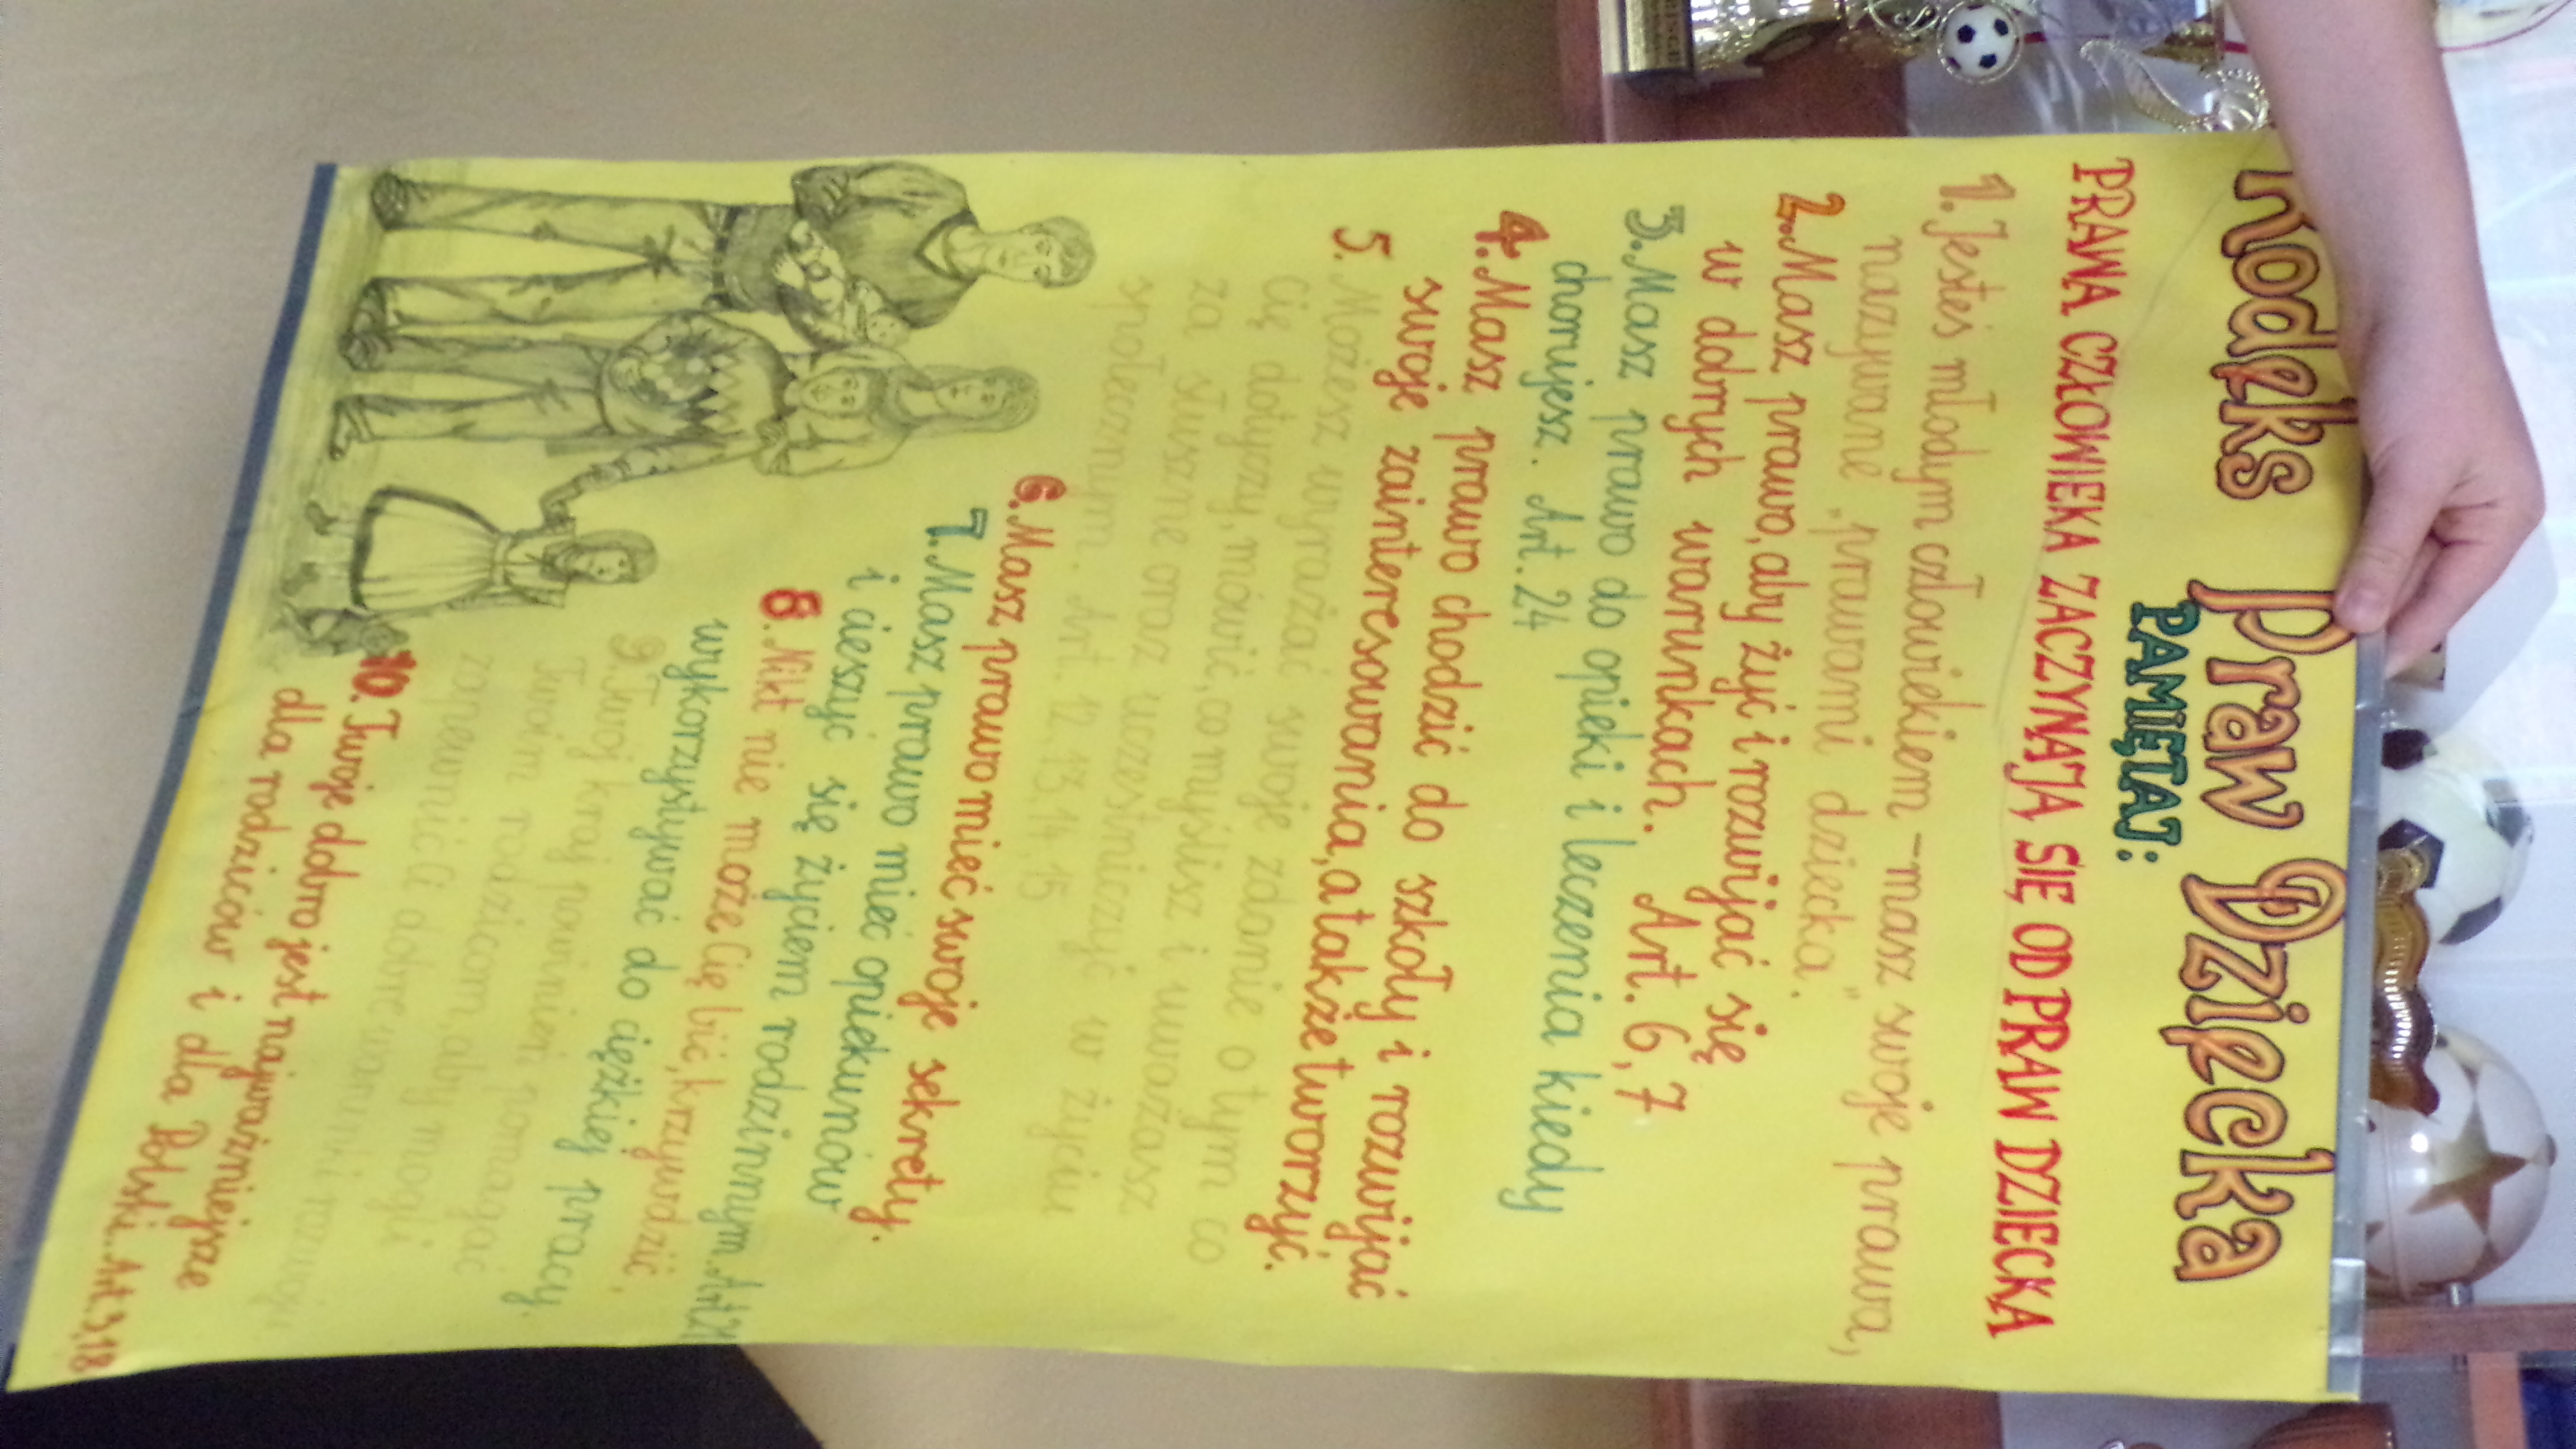 Kodeks Praw Dziecka
PAMIĘTAJ:
PRAWA CZŁOWIEKA ZACZYNAJĄ SIĘ OD PRAW DZIECKA
1. Jesteś młodym człowiekiem - masz swoje prawa,
nazywane „prawami dziecka”.
2. Masz prawo, aby żyć i rozwijać się
w dobrych warunkach. Art. 6, 7
3. Masz prawo do opieki i leczenia kiedy
chorujesz. Art. 24
4. Masz prawo chodzić do szkoły i rozwijać
swoje zainteresowania, a także tworzyć.
5. Możesz wyrażać swoje zdanie o tym co
Cię dotyczy, mówić, co myślisz i uważasz
za słuszne oraz uczestniczyć w życiu
społecznym. Art. 12, 13, 14, 15
6. Masz prawo mieć swoje sekrety.
7. Masz prawo mieć opiekunów
i cieszyć się życiem rodzinnym. Art. 21
8. Nikt nie może Cię bić, krzywdzić,
wykorzystywać do ciężkiej pracy.
9. Twój kraj powinien pomagać
Twoim rodzicom, aby mogli
zapewnić Ci dobre warunki rozwoju.
10. Twoje dobro jest najważniejsze
dla rodziców i dla Polski. Art. 3, 18